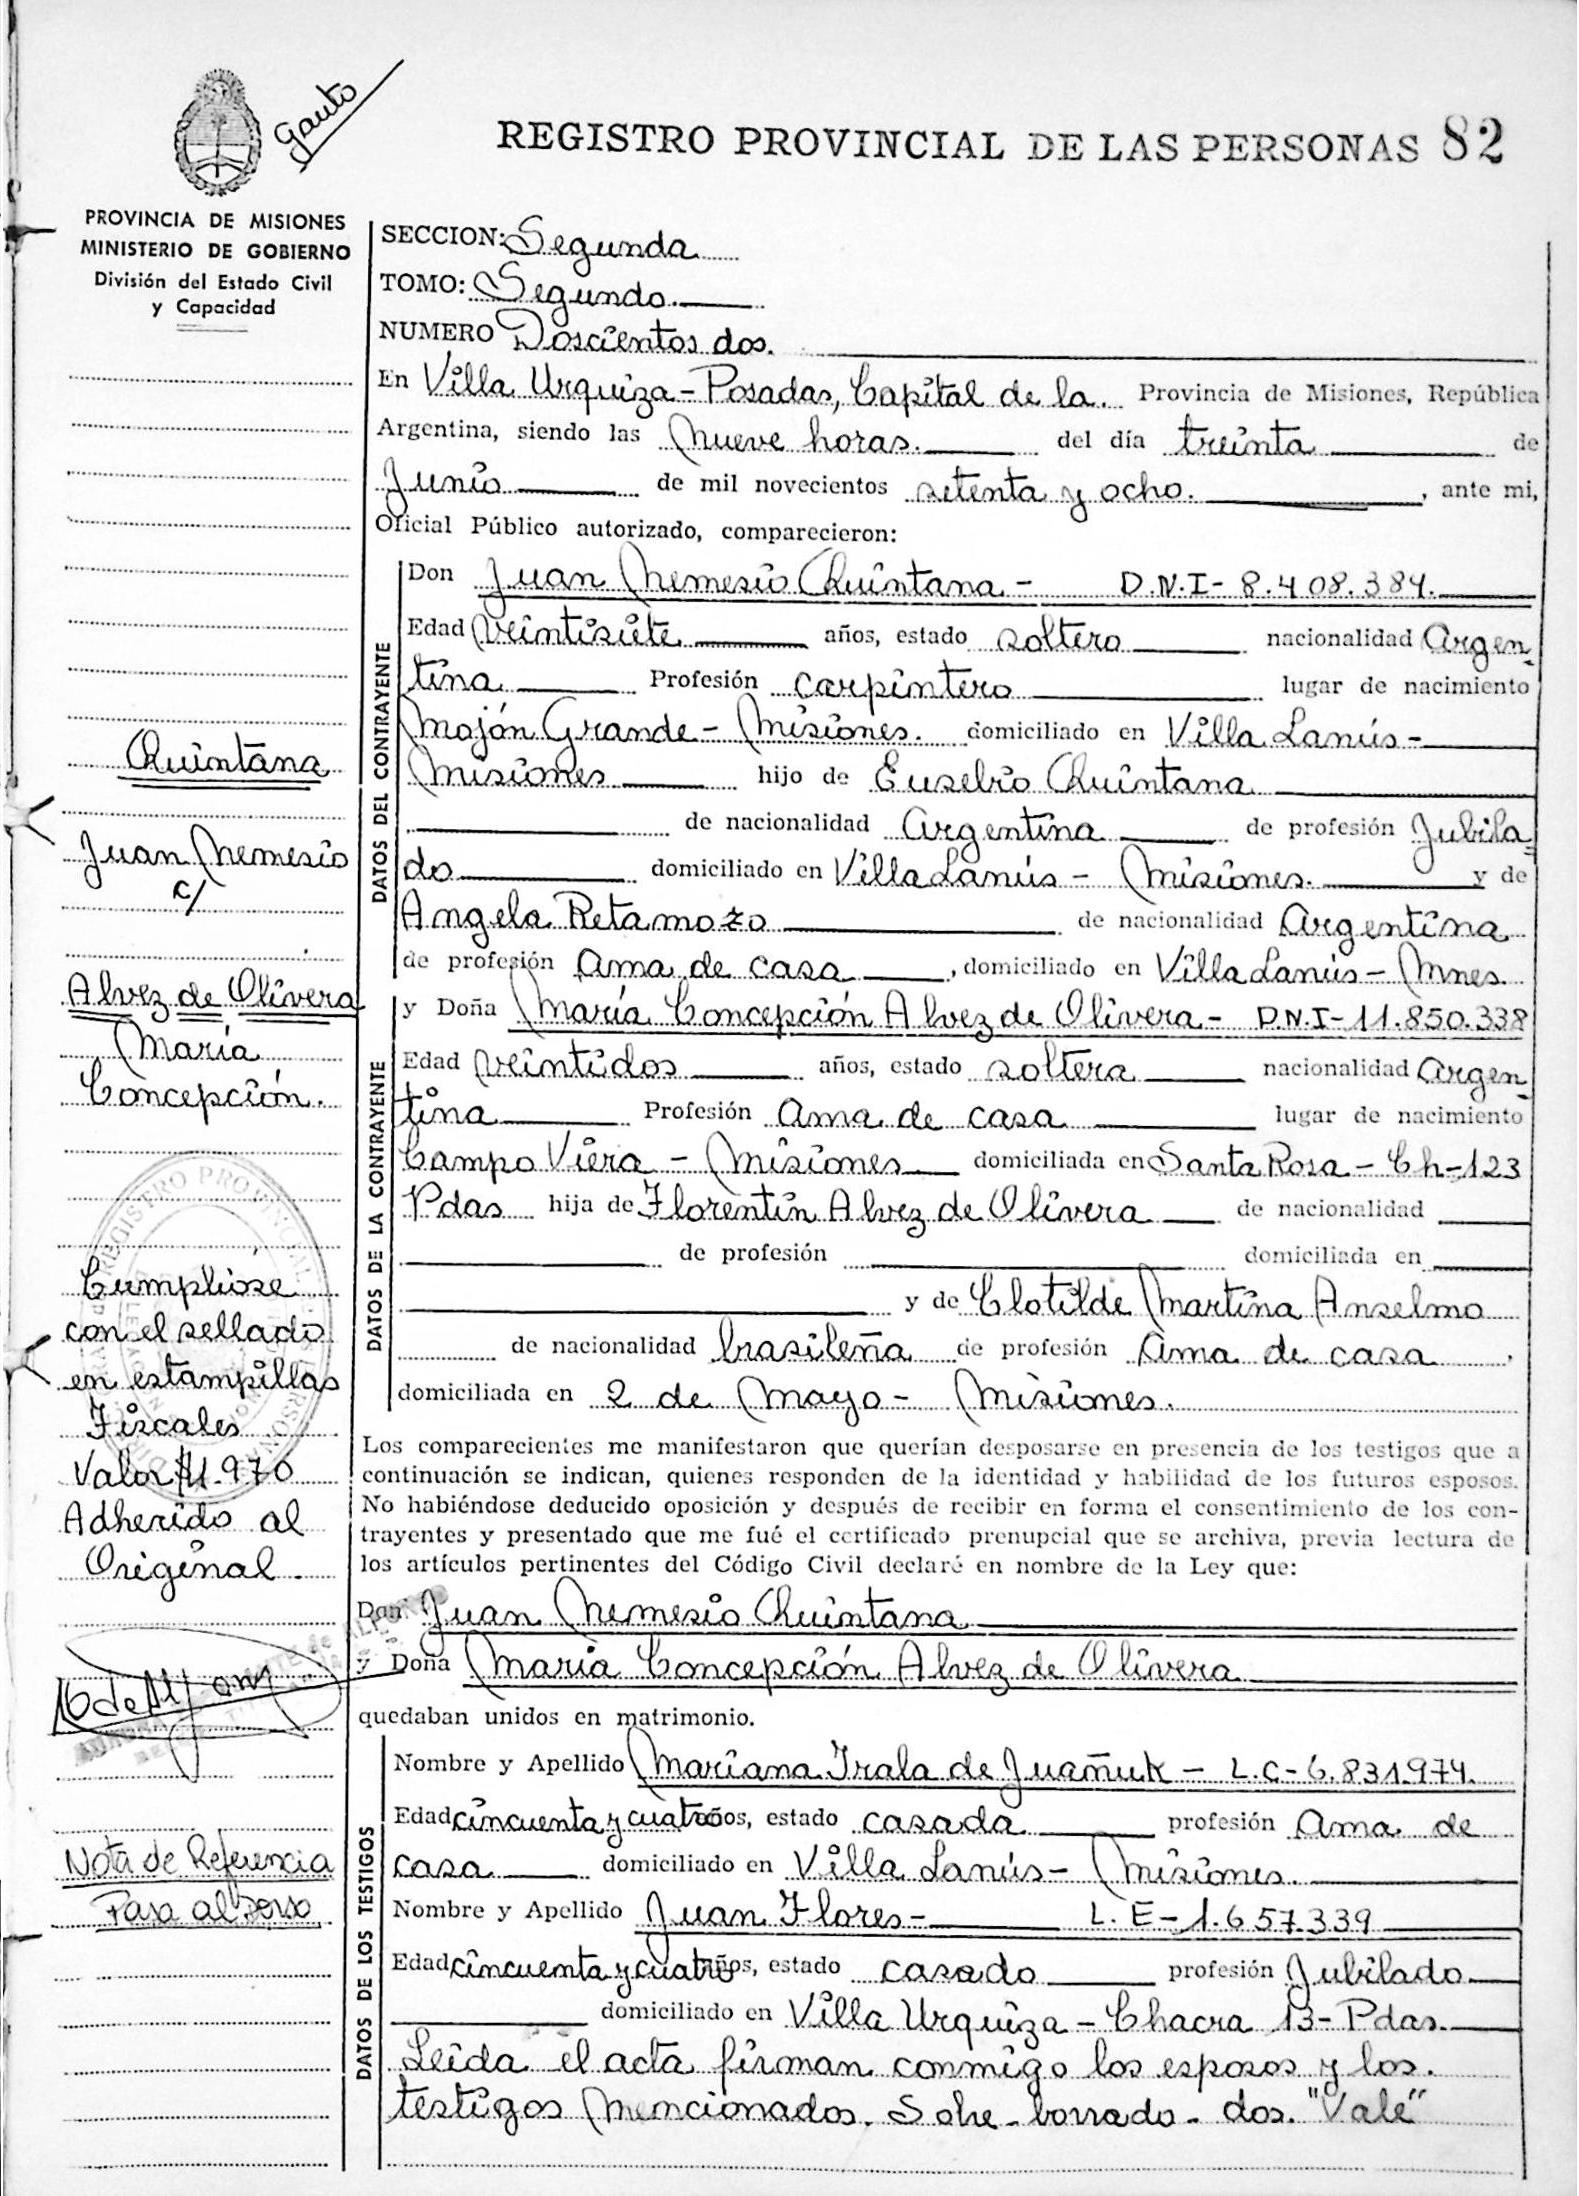 Gauto
REGISTRO PROVINCIAL DE LAS PERSONAS 82
PROVINCIA DE MISIONES
MINISTERIO DE GOBIERNO
División del Estado Civil
y Capacidad
SECCION: Segunda
TOMO: Segundo.
NUMERO Doscientos dos.
En Villa Urquiza - Posadas, Capital de la. Provincia de Misiones, República
Argentina, siendo las nueve horas. del día treinta de
Junio de mil novecientos setenta y ocho. , ante mi,
Oficial Público autorizado, comparecieron:
DATOS DEL CONTRAYENTE
Don Juan Nemesio Quintana - D.N.I - 8.408.384.
Edad veintisiete años, estado soltero nacionalidad Argen-
tina Profesión carpintero lugar de nacimiento
Mojón Grande - Misiones. domiciliado en Villa Lanús -
Misiones hijo de Eusebio Quintana
de nacionalidad Argentina de profesión Jubila-
do domiciliado en Villa Lanús - Misiones. y de
Angela Retamozo de nacionalidad Argentina
de profesión Ama de casa , domiciliado en Villa Lanús - Mnes.
DATOS DE LA CONTRAYENTE
y Doña María Concepción Alvez de Olivera - D.N.I - 11.850.338
Edad veintidos años, estado soltera nacionalidad Argen-
tina Profesión Ama de casa lugar de nacimiento
Campo Viera - Misiones domiciliada en Santa Rosa - Ch-123
Pdas hija de Florentín Alvez de Olivera de nacionalidad
de profesión domiciliada en
y de Clotilde Martina Anselmo
de nacionalidad brasileña de profesión Ama de casa .
domiciliada en 2 de Mayo - Misiones.
Los comparecientes me manifestaron que querían desposarse en presencia de los testigos que a
continuación se indican, quienes responden de la identidad y habilidad de los futuros esposos.
No habiéndose deducido oposición y después de recibir en forma el consentimiento de los con-
trayentes y presentado que me fué el certificado prenupcial que se archiva, previa lectura de
los artículos pertinentes del Código Civil declaré en nombre de la Ley que:
Don Juan Nemesio Quintana
y Doña María Concepción Alvez de Olivera
quedaban unidos en matrimonio.
DATOS DE LOS TESTIGOS
Nombre y Apellido Mariana Irala de Juañuk - L.C - 6.831.974.
Edad cincuenta y cuatro años, estado casada profesión Ama de
casa domiciliado en Villa Lanús - Misiones.
Nombre y Apellido Juan Flores - L.E - 1.657.339
Edad cincuenta y cuatro años, estado casado profesión Jubilado
domiciliado en Villa Urquiza - Chacra 13 - Pdas.
Leida el acta firman conmigo los esposos y los.
testigos mencionados. Sobre-borrado - dos. "Vale"
Quintana
Juan Nemesio
c/
Alvez de Olivera
María
Concepción.
REGISTRO PROVINCIAL
Cumplióse
con el sellado
en estampillas
Fiscales
Valor $1.970
Adherido al
Original.
Nota de Referencia
Pasa al Dorso